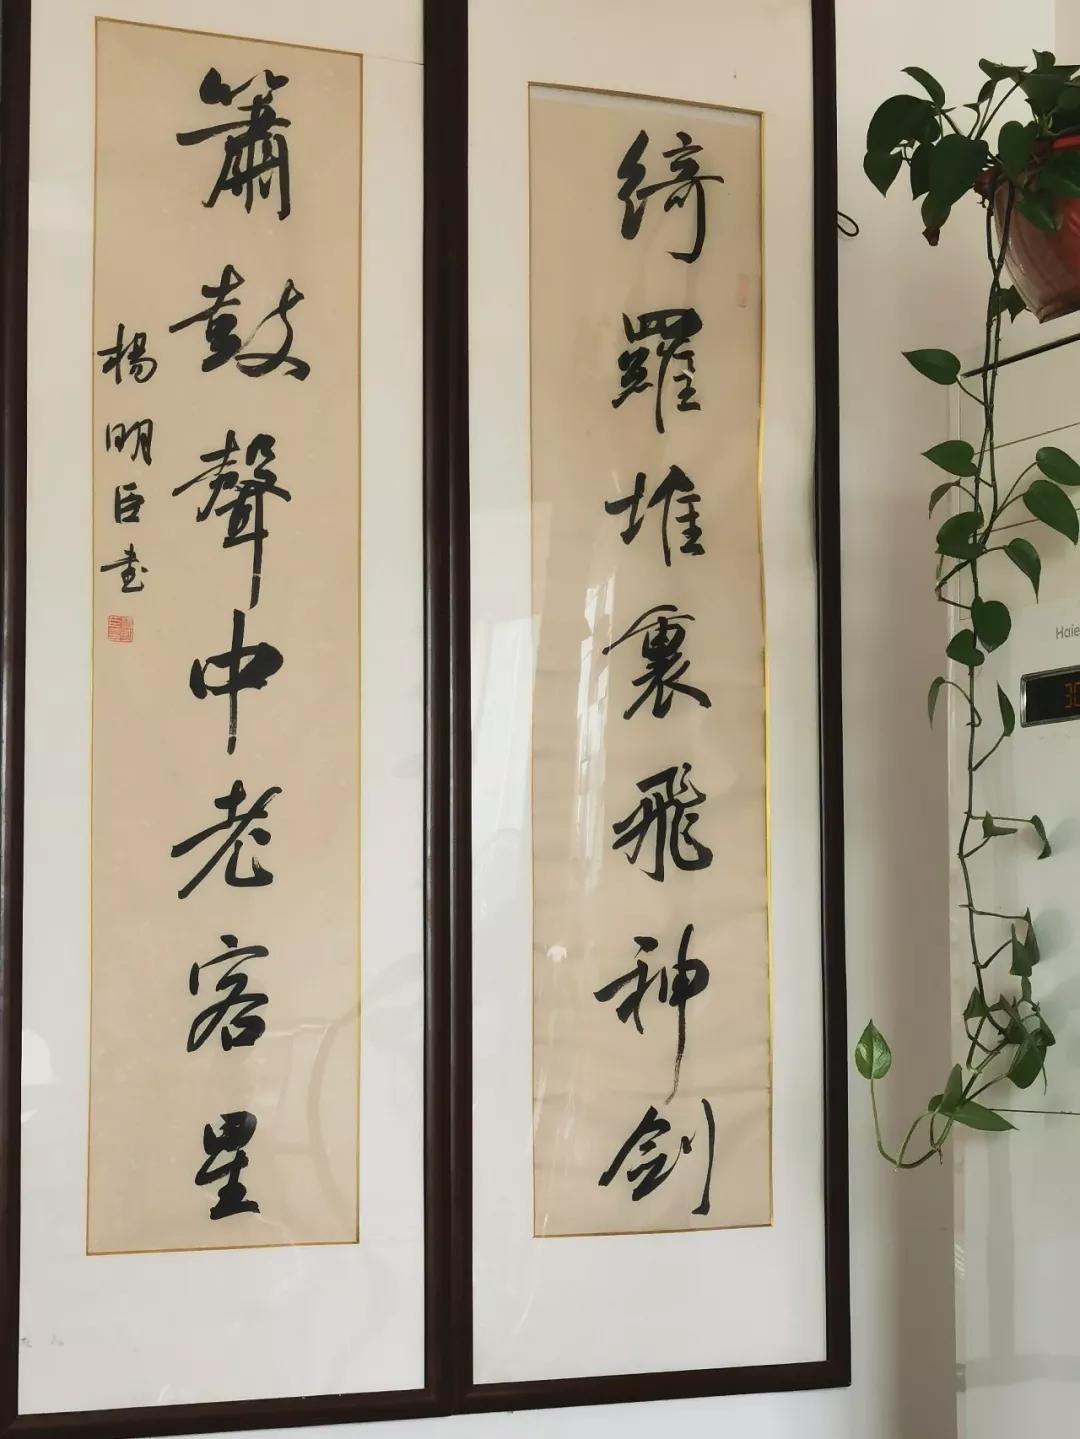 綺羅堆裏飛神劍
簫鼓聲中老客星
楊明臣书
Haie
30